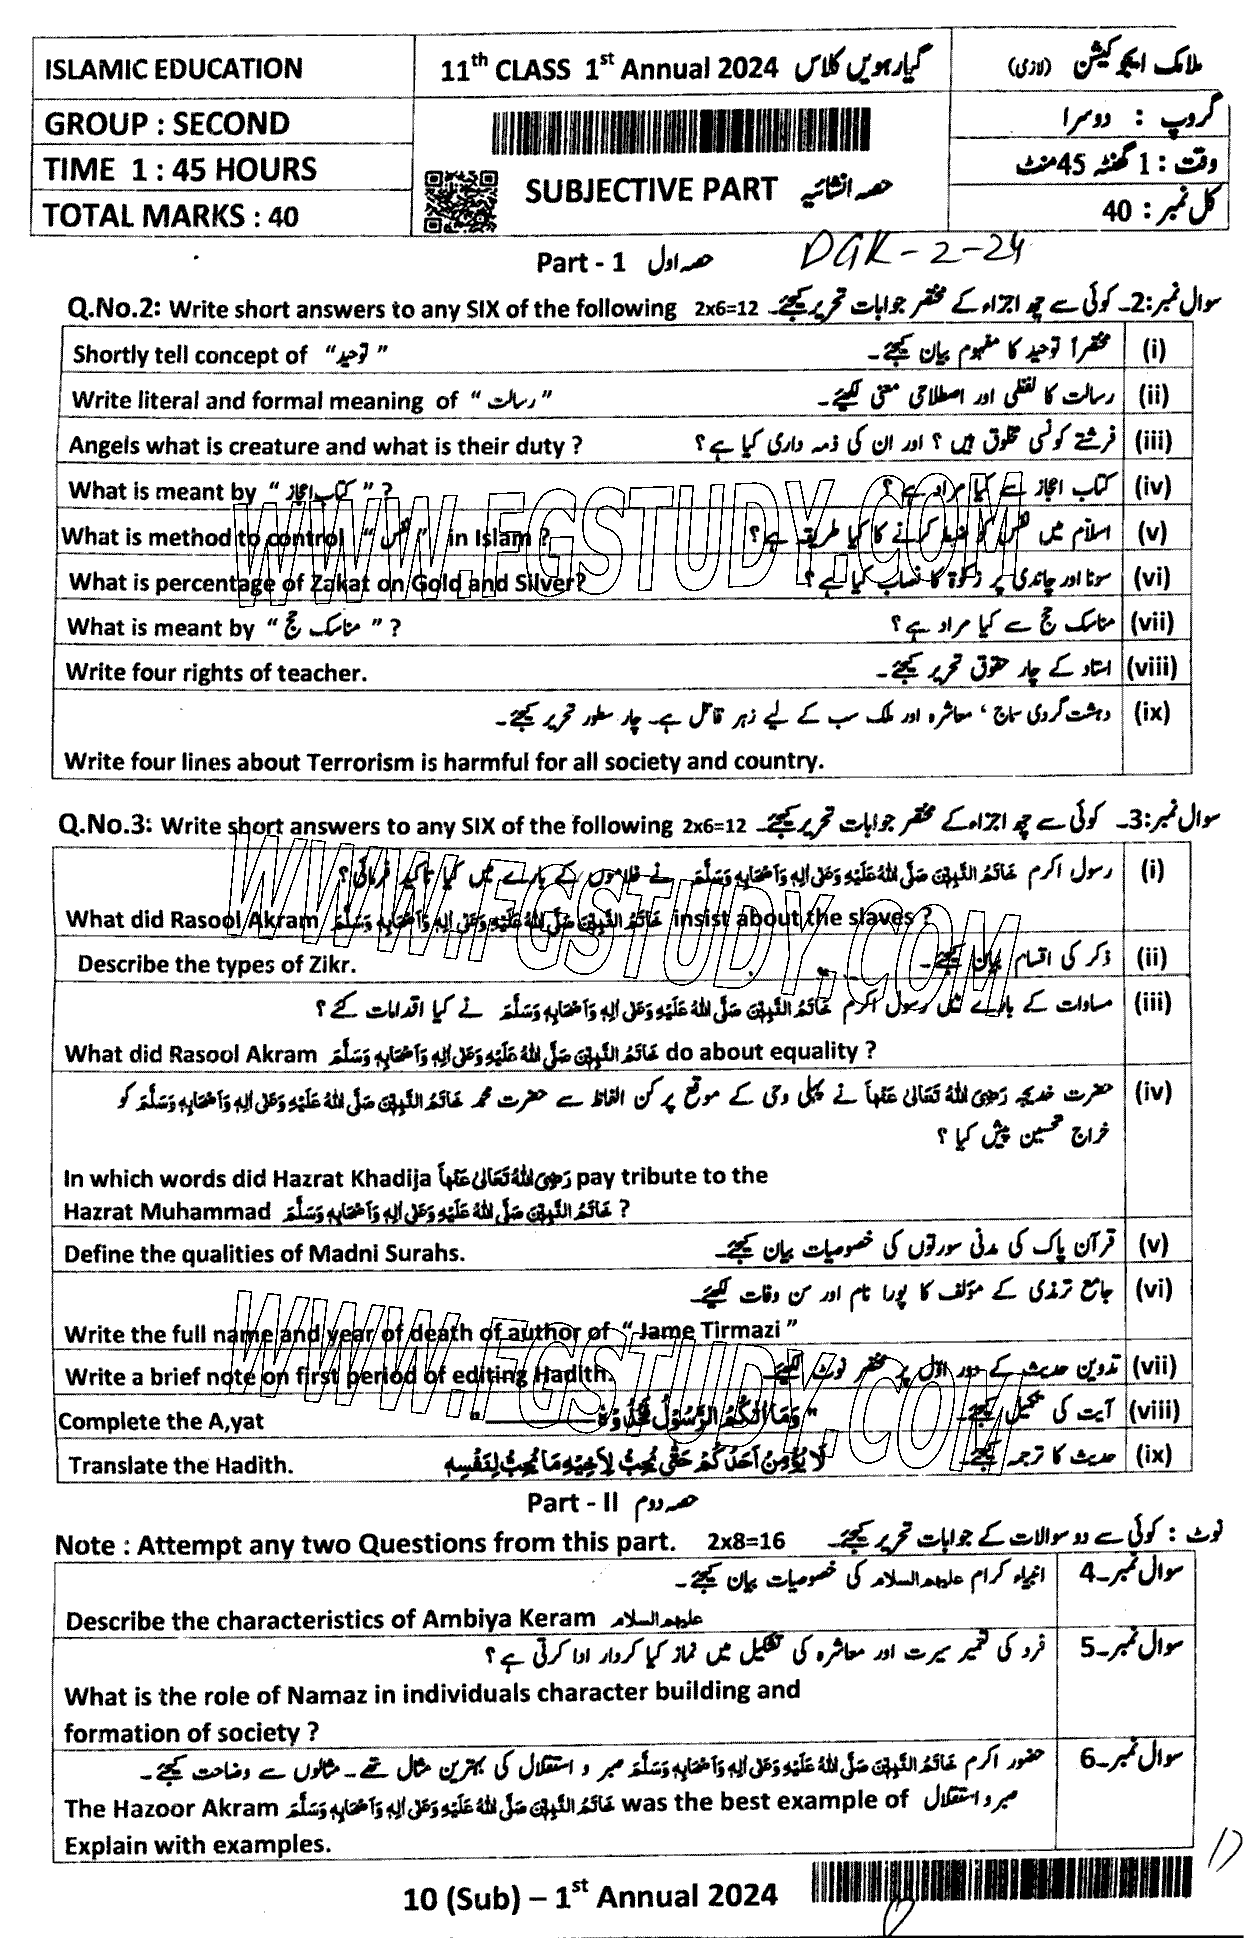 ISLAMIC EDUCATION
11th CLASS 1st Annual 2024 گیارہویں کلاس
اسلامک ایجوکیشن (لازمی)
GROUP : SECOND
گروپ : دوسرا
TIME 1 : 45 HOURS
وقت : 1 گھنٹہ 45 منٹ
SUBJECTIVE PART حصہ انشائیہ
TOTAL MARKS : 40
کل نمبر : 40
Part - 1 حصہ اول
DGK-2-24
Q.No.2: Write short answers to any SIX of the following 2x6=12 سوال نمبر:2۔ کوئی سے چھ اجزاء کے مختصر جوابات تحریر کیجئے۔
Shortly tell concept of “توحید” مختصراً توحید کا مفہوم بیان کیجئے۔ (i)
Write literal and formal meaning of “رسالت” رسالت کا لفظی اور اصطلاحی معنی لکھیئے۔ (ii)
Angels what is creature and what is their duty ? فرشتے کونسی مخلوق ہیں ؟ اور ان کی ذمہ داری کیا ہے ؟ (iii)
What is meant by “کتاب اعجاز” ? کتاب اعجاز سے کیا مراد ہے ؟ (iv)
What is method to control “نفس” in Islam ? اسلام میں نفس کو ضبط کرنے کا کیا طریقہ ہے ؟ (v)
What is percentage of Zakat on Gold and Silver? سونا اور چاندی پر زکوٰۃ کا نصاب کیا ہے ؟ (vi)
What is meant by “مناسک حج” ? مناسک حج سے کیا مراد ہے ؟ (vii)
Write four rights of teacher. استاد کے چار حقوق تحریر کیجئے۔ (viii)
دہشت گردی سماج ، معاشرہ اور ملک سب کے لیے زہر قاتل ہے۔ چار سطور تحریر کیجئے۔ (ix)
Write four lines about Terrorism is harmful for all society and country.
WWW.FGSTUDY.COM
Q.No.3: Write short answers to any SIX of the following 2x6=12 سوال نمبر:3۔ کوئی سے چھ اجزاء کے مختصر جوابات تحریر کیجئے۔
رسول اکرم خَاتَمُ النَّبِيّٖنَ صَلَّی اللهُ عَلَيْهِ وَعَلٰی اٰلِهٖ وَاَصْحَابِهٖ وَسَلَّمَ نے غلاموں کے بارے میں کیا تاکید فرمائی ؟ (i)
What did Rasool Akram خَاتَمُ النَّبِيّٖنَ صَلَّی اللهُ عَلَيْهِ وَعَلٰی اٰلِهٖ وَاَصْحَابِهٖ وَسَلَّمَ insist about the slaves ?
Describe the types of Zikr. ذکر کی اقسام بیان کیجئے۔ (ii)
مساوات کے بارے میں رسول اکرم خَاتَمُ النَّبِيّٖنَ صَلَّی اللهُ عَلَيْهِ وَعَلٰی اٰلِهٖ وَاَصْحَابِهٖ وَسَلَّمَ نے کیا اقدامات کئے ؟ (iii)
What did Rasool Akram خَاتَمُ النَّبِيّٖنَ صَلَّی اللهُ عَلَيْهِ وَعَلٰی اٰلِهٖ وَاَصْحَابِهٖ وَسَلَّمَ do about equality ?
حضرت خدیجہ رَضِیَ اللهُ تَعَالٰی عَنْهَا نے پہلی وحی کے موقع پر کن الفاظ سے حضرت محمد خَاتَمُ النَّبِيّٖنَ صَلَّی اللهُ عَلَيْهِ وَعَلٰی اٰلِهٖ وَاَصْحَابِهٖ وَسَلَّمَ کو (iv)
خراج تحسین پیش کیا ؟
In which words did Hazrat Khadija رَضِیَ اللهُ تَعَالٰی عَنْهَا pay tribute to the
Hazrat Muhammad خَاتَمُ النَّبِيّٖنَ صَلَّی اللهُ عَلَيْهِ وَعَلٰی اٰلِهٖ وَاَصْحَابِهٖ وَسَلَّمَ ?
Define the qualities of Madni Surahs. قرآن پاک کی مدنی سورتوں کی خصوصیات بیان کیجئے۔ (v)
جامع ترمذی کے مؤلف کا پورا نام اور سن وفات لکھیئے۔ (vi)
Write the full name and year of death of author of “Jame Tirmazi”
Write a brief note on first period of editing Hadith. تدوین حدیث کے دور اوّل پر مختصر نوٹ لکھیئے۔ (vii)
Complete the A,yat "وَمَا اٰتٰكُمُ الرَّسُوْلُ فَخُذُوْهُ ________" آیت کی تکمیل کیجئے۔ (viii)
Translate the Hadith. لَا يُؤْمِنُ اَحَدُكُمْ حَتّٰى يُحِبَّ لِاَخِيْهِ مَا يُحِبُّ لِنَفْسِهٖ حدیث کا ترجمہ کیجئے۔ (ix)
WWW.FGSTUDY.COM
WWW.FGSTUDY.COM
Part - II حصہ دوم
Note : Attempt any two Questions from this part. 2x8=16 نوٹ : کوئی سے دو سوالات کے جوابات تحریر کیجئے۔
انبیاء کرام علیہم السلام کی خصوصیات بیان کیجئے۔ سوال نمبر۔4
Describe the characteristics of Ambiya Keram علیہم السلام
فرد کی تعمیر سیرت اور معاشرہ کی تشکیل میں نماز کیا کردار ادا کرتی ہے ؟ سوال نمبر۔5
What is the role of Namaz in individuals character building and
formation of society ?
حضور اکرم خَاتَمُ النَّبِيّٖنَ صَلَّی اللهُ عَلَيْهِ وَعَلٰی اٰلِهٖ وَاَصْحَابِهٖ وَسَلَّمَ صبر و استقلال کی بہترین مثال تھے۔ مثالوں سے وضاحت کیجئے۔ سوال نمبر۔6
The Hazoor Akram خَاتَمُ النَّبِيّٖنَ صَلَّی اللهُ عَلَيْهِ وَعَلٰی اٰلِهٖ وَاَصْحَابِهٖ وَسَلَّمَ was the best example of صبر و استقلال
Explain with examples.
10 (Sub) – 1st Annual 2024